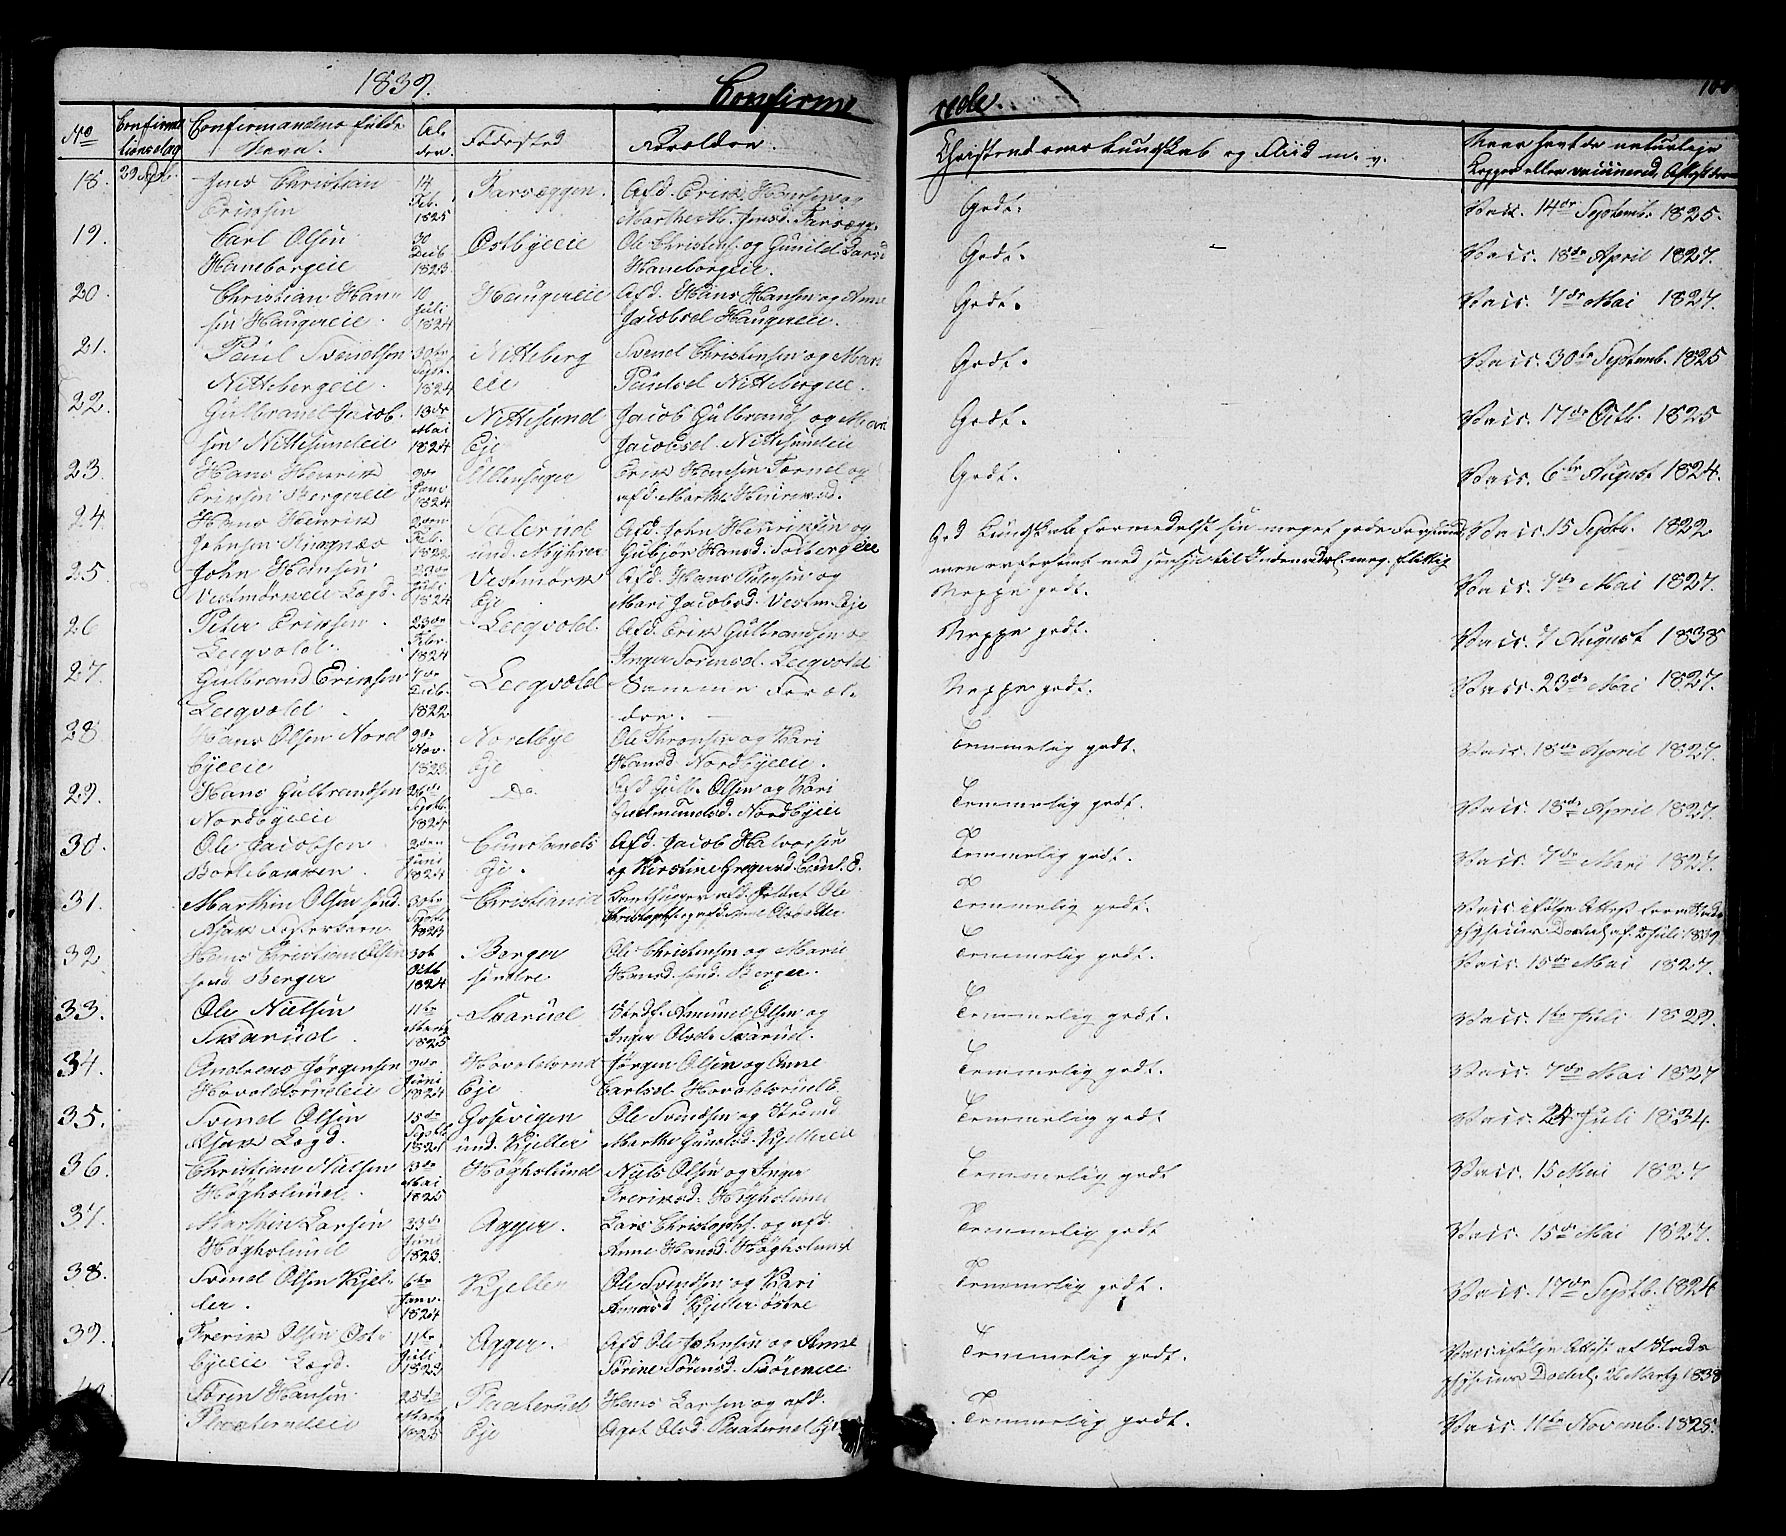 1839.
Confirme
rede.
No
Confirma
tionsdag
Confirmandens fulde
Navn.
Al
der.
Fødested
Forældre.
Christendoms Kundskab og Fliid m. v.
Naar havt de naturlige
Kopper eller vaccineret
18.
29 Sept.
Jens Christian
Eriksen
14
Feb.
1825
Farseggen.
Afd. Erik Hansen og
Marthe M. Jensd. Farsegg.
Godt.
Vacc. 14de Septemb. 1825.
19.
Carl Olsen
Haneborgeie
30
Decb.
1823
Østbyeeie
Ole Christens. og Gunild Larsd
Haneborgeie.
Godt.
Vacc. 18de April 1827.
20.
Christian Han
sen Haugereie
10
Juli
1824
Haugereie
Afd. Hans Hansen og Anne
Jacobsd Haugereie.
Godt.
Vacc. 7de Mai 1827.
21.
Paul Svendsen
Nittebergeie.
30te
Sept.
1824
Nitteberg
eie
Svend Christensen og Mari
Paulsd Nittebergeie.
Godt.
Vacc. 30te Septemb. 1825
22.
Gulbrand Jacob
sen Nittesundeie
13de
Mai
1824
Nittesund
Eje
Jacob Gulbrands og Mari
Jacobsd. Nittesundeie
Godt.
Vacc. 17de Octb. 1825
23.
Hans Henrik
Eriksen Bergereie
9de
Janv
1824
Ullensager
Erik Hansen og
afd. Marthe Henriksd.
Godt.
Vacc. 6te August 1824.
24.
Hans Henrik
Johnsen
2den
Feb.
1822
und. Myhrer
Afd. John Henriksen og
Gubjør Hansd. Solbergeie
God Kundskab formedelst sin meget gode Forstand
men er forsømt med hensyn til
Vacc. 15 Septb. 1822
25.
John Hansen
Vestmorkeie Logd.
Juli
1824
Vestmork
Eje
Afd. Hans Paulsen og
Mari Jacobsd. Vestm. Eje
Neppe godt.
Vacc. 7de Mai 1827.
26
Peter Eriksen
Leqvold.
23de
Febr.
1824
Leqvold.
Afd. Erik Gulbrandsen og
Inger Torensd. Leqvold
Neppe godt.
Vacc. 4 August 1838
27.
Gulbrand Eriksen
Leqvold
4de
Decb.
1822
Leqvold
Samme Foræl
dre.
Neppe godt.
Vacc. 23de Mai 1827.
28.
Hans Olsen Nord
byeeie
9de
Nov.
1823.
Nordbye
Eje
Ole Thronsen og Kari
Hansd. Nordbyeeie.
Temmelig godt.
Vacc. 18de April 1827.
29.
Hans Gulbrandsen
Nordbyeeie
26de
Septb.
1824
Do
Afd Gulb. Olsen og Kari
Gudmundsd. Nordbyeie
Temmelig godt.
Vacc. 18de April 1827.
30.
Ole Jacobsen
2den
Juni
1824
Eje.
Afd. Jacob Halvorsen
og Kirstine Gregersd.
Temmelig godt.
Vacc. 7de Mai 1827.
31.
Marthin Olsen
Fosterbarn
30te
Septb
1823
Christiania
afd. Soldat Ole
Temmelig godt.
Vacc ifølge Attest fra Stads
physicus af 2 Juli 1839
32
Hans Christian Olsen
sønd Berger
30te
Octb
1824
Berger
søndre
Ole Christensen og Marie
Hansd. sønd. Berger.
Temmelig godt.
Vacc. 15de Mai 1827.
33.
Ole Nielsen
Skarud.
11te
Marts
1825
Skarud
Amund Olsen og
Inger Olsd. Skarud.
Temmelig godt.
Vacc. 1te Juli 1829.
34.
Andreas Jørgensen
Hovaldsrudeie
9de
Juni
1824
Hovaldsrud
Eje
Jørgen Olsen og Anne
Carlsd. Hovaldsrud E.
Temmelig godt.
Vacc. 7de Mai 1827
35.
Svend Olsen
Logd.
15de
Septb
und. Kjeller
Ole Svendsen og
Marthe Kjellereie
Temmelig godt
Vacc. 24 Juli 1834.
36.
Christian Nielsen
Høgholund.
13de
Mai
1825
Høgholund
Niels Olsen og Inger
Frederiksd. Høgholund
Temmelig godt
Vacc. 15 Mai 1827
37.
Marthin Larsen
Høgholund
23de
Juni
1823
Agger.
Lars Christophs. og afd.
Anne Hansd. Høgholund
Temmelig godt
Vacc. 15de Mai 1827.
38.
Svend Olsen Kjel
ler.
6te
Janv.
1824
Kjeller
Ole Svendsen og Kari
Kjeller østre
Temmelig godt.
Vacc. 17de Septb. 1824
39.
Frerik Olsen Øst
byeeie Logd.
11te
Juli
1823
Agger.
Afd Ole Johnsen og Anne
Sørine Sørensd.
Temmelig godt.
Vacc ifølge Attest af Stads
physicus 26 Marts 1838
40
Søren Hansen
25de
Marts
1825
Eje
Hans Larsen og afd.
Agot Olsd.
Temmelig godt.
Vacc. 11te Novemb. 1825.